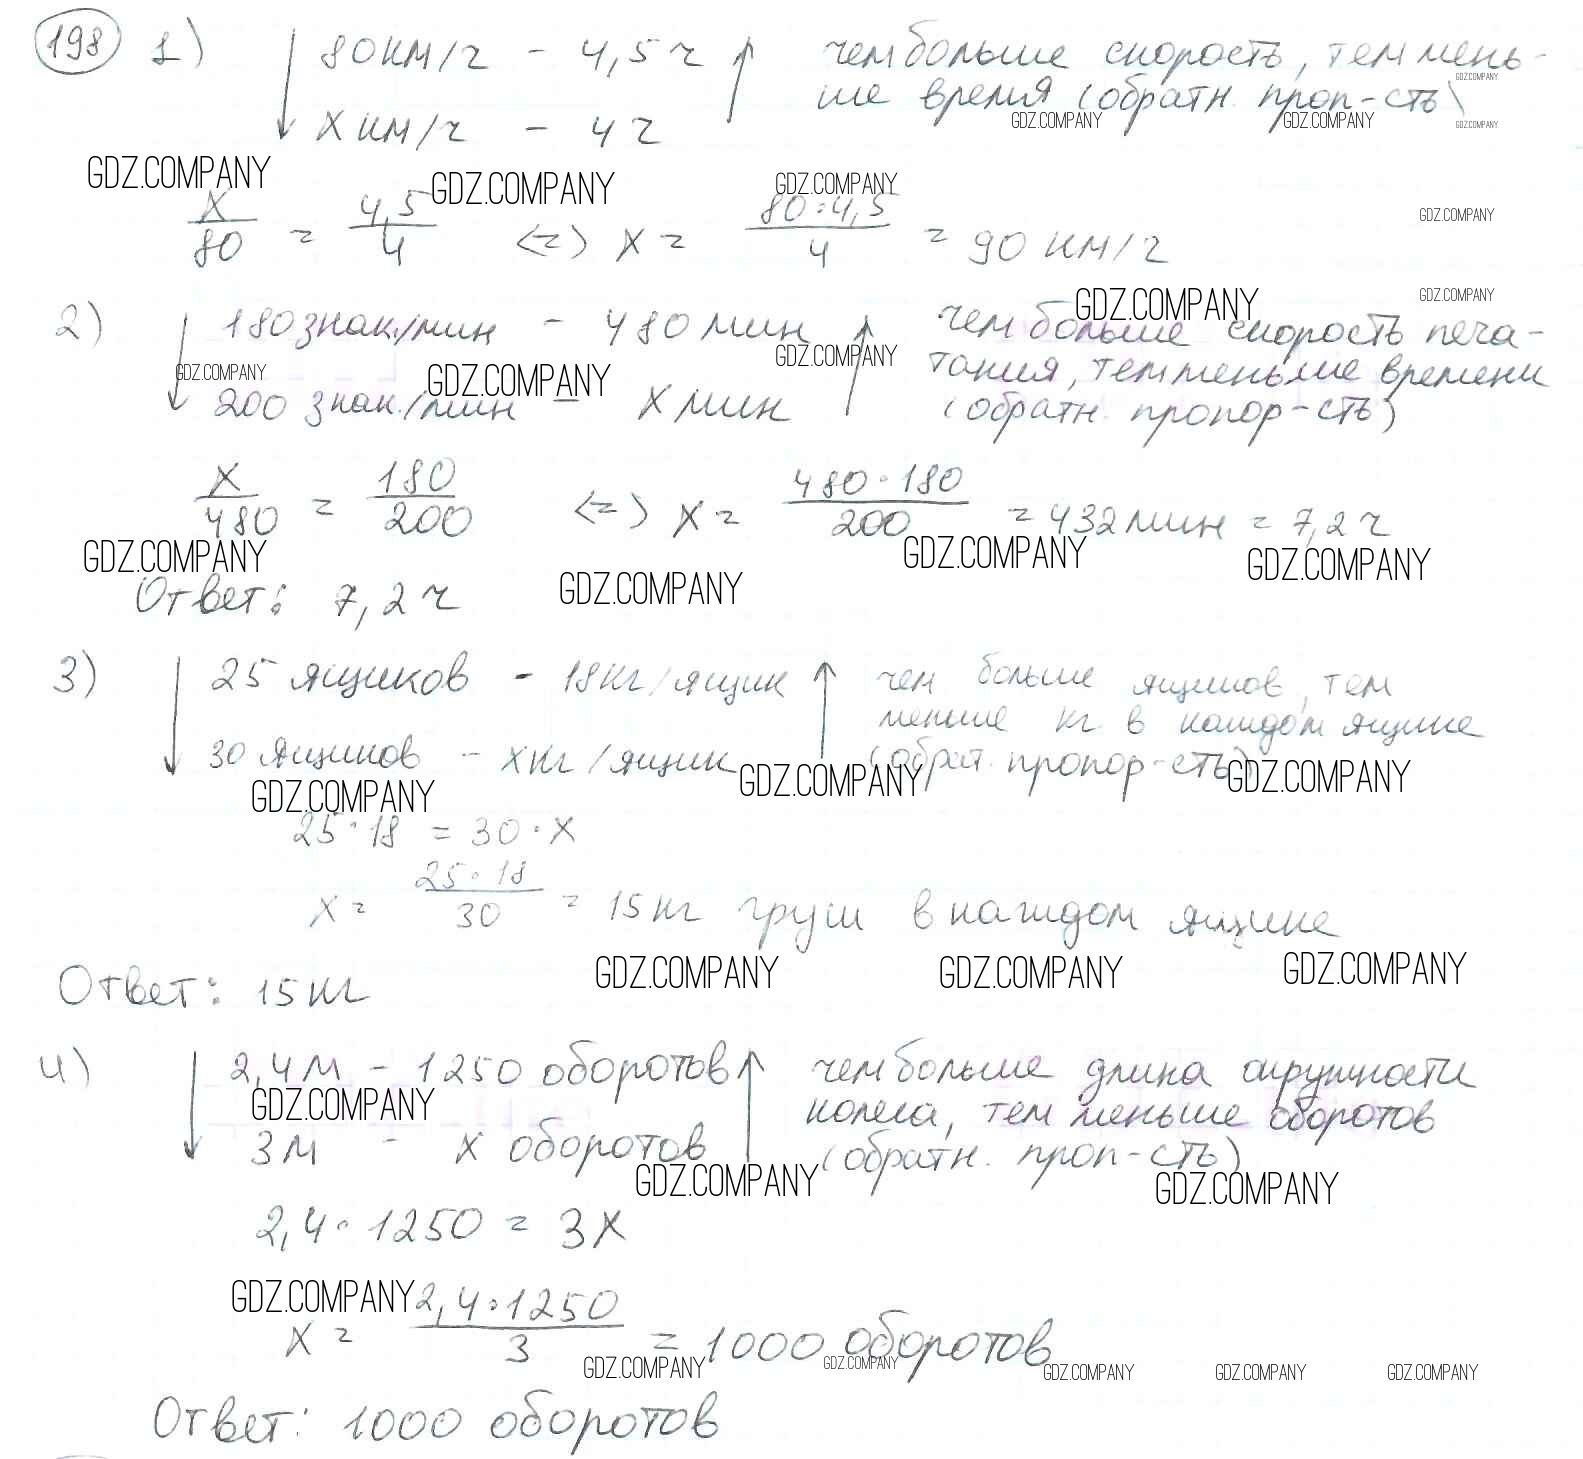 198 1) 80 км/ч - 4,5 ч чем больше скорость, тем мень-
х км/ч - 4 ч ше время (обратн. проп-сть)
x/80 = 4,5/4 <=> x = 80·4,5/4 = 90 км/ч
2) 180 знак./мин - 480 мин чем больше скорость печа-
тания, тем меньше времени
200 знак./мин - х мин (обратн. пропор-сть)
x/480 = 180/200 <=> x = 480·180/200 = 432 мин = 7,2 ч
Ответ: 7,2 ч
3) 25 ящиков - 18 кг/ящик чем больше ящиков, тем
меньше кг в каждом ящике
30 ящиков - х кг/ящик (обрат. пропор-сть)
25·18 = 30·x
x = 25·18/30 = 15 кг груш в каждом ящике
Ответ: 15 кг
4) 2,4 м - 1250 оборотов чем больше длина окружности
колеса, тем меньше оборотов
3 м - х оборотов (обратн. проп-сть)
2,4·1250 = 3x
x = 2,4·1250/3 = 1000 оборотов
Ответ: 1000 оборотов
GDZ.COMPANY